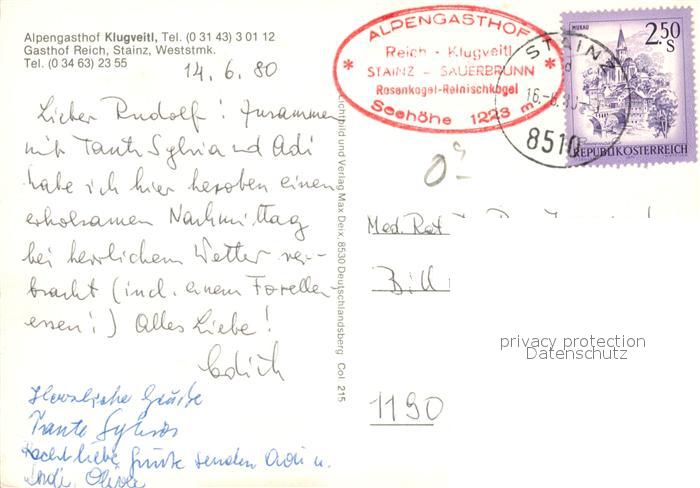 Alpengasthof Klugveitl, Tel. (0 31 43) 3 01 12
Gasthof Reich, Stainz, Weststmk.
Tel. (0 34 63) 23 55
14. 6. 80
Lieber Rudolf! Zusammen
mit Tante Sylvia und Adi
habe ich hier heroben einen
erholsamen Nachmittag
bei herrlichem Wetter ver-
bracht (incl. einem Forellen-
essen!) Alles Liebe!
Edith
Herzliche Grüße
Tante Sylvia
Recht liebe Grüße senden Adi u.
Lichtbild und Verlag Max Deix, 8530 Deutschlandsberg Col. 215
ALPENGASTHOF
Reich - Klugveitl
STAINZ - SAUERBRUNN
Rosenkogel-Reinischkogel
Seehöhe 1223 m
STAINZ
8510
MURAU
2.50
S
REPUBLIK ÖSTERREICH
Med. Rat
1190
privacy protection
Datenschutz